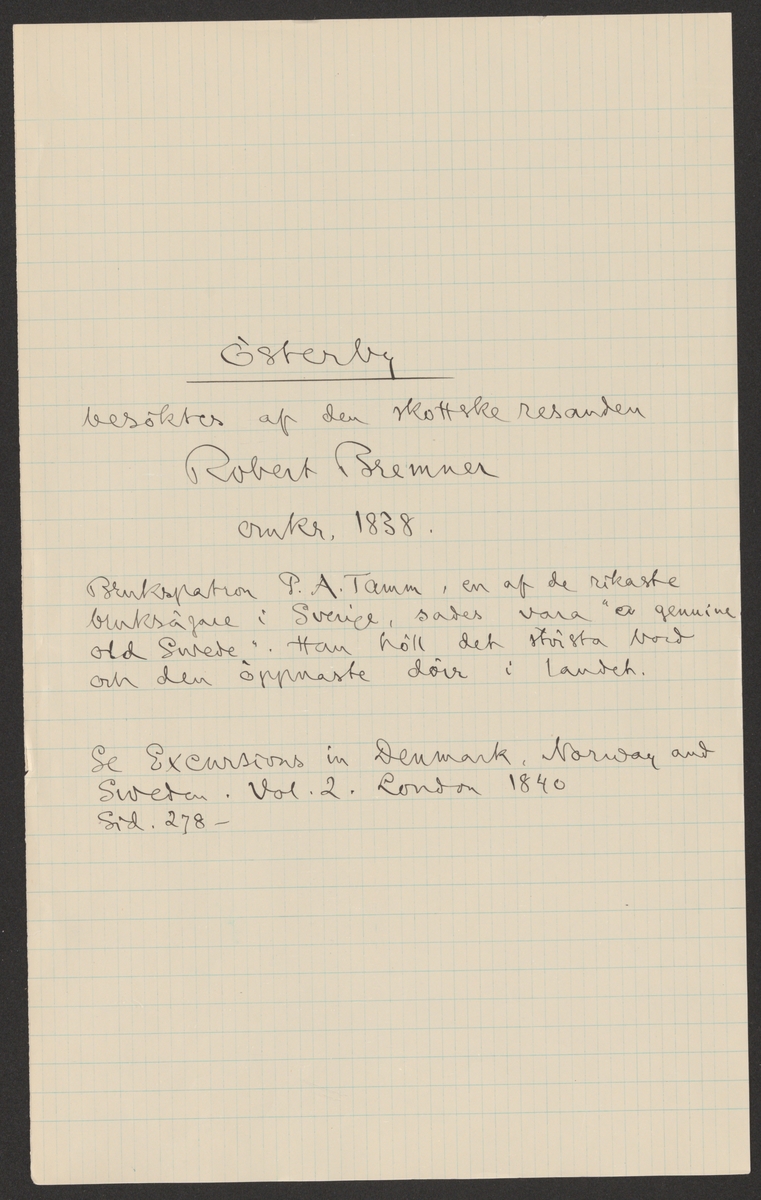 Österby
besöktes af den skottske resanden
Robert Bremner
omkr. 1838.
Brukspatron P. A. Tamm, en af de rikaste
bruksägare i Sverige, sades vara "a genuine
old Swede". Han höll det största bord
och den öppnaste dörr i landet.
Se Excursions in Denmark, Norway and
Sweden. Vol. 2. London 1840
Sid. 278 –